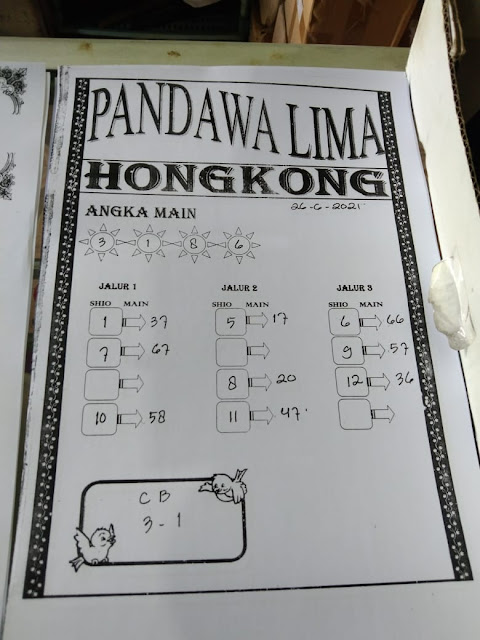 PANDAWA LIMA
HONGKONG
26-6-2021
ANGKA MAIN
3 1 8 6
JALUR 1 JALUR 2 JALUR 3
SHIO MAIN SHIO MAIN SHIO MAIN
1 37 5 17 6 66
7 67 9 57
8 20 12 36
10 58 11 47
C B
3 - 1